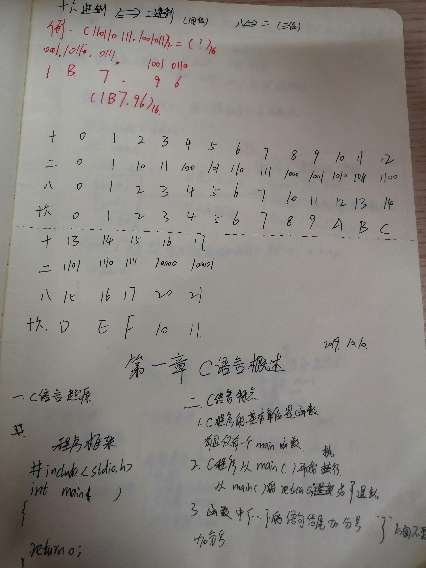 十六进制 <=> 二进制
例. (110110111.1001011)₂ = ( ? )₁₆
0001, 1011, 0111. 1001 0110
1 B 7 . 9 6
(1B7.96)₁₆
十 0 1 2 3 4 5 6 7 8 9 10 11 12
二 0 1 10 11 100 101 110 111 1000 1001 1010 1011 1100
八 0 1 2 3 4 5 6 7 10 11 12 13 14
十六 0 1 2 3 4 5 6 7 8 9 A B C
十 13 14 15 16 17
二 1101 1110 1111 10000 10001
八 15 16 17 20 21
十六. D E F 10 11
2019.10.10.
第一章 C语言概述
一 C语言起源
二. C语言特点
1. C程序的基本单位是函数
有且只有一个main函数
2. C程序从main()开始执行
从main()的return 0
3. 函数中的语句结尾加分号
加分号
程序框架
#include<stdio.h>
int main( )
{
return 0;